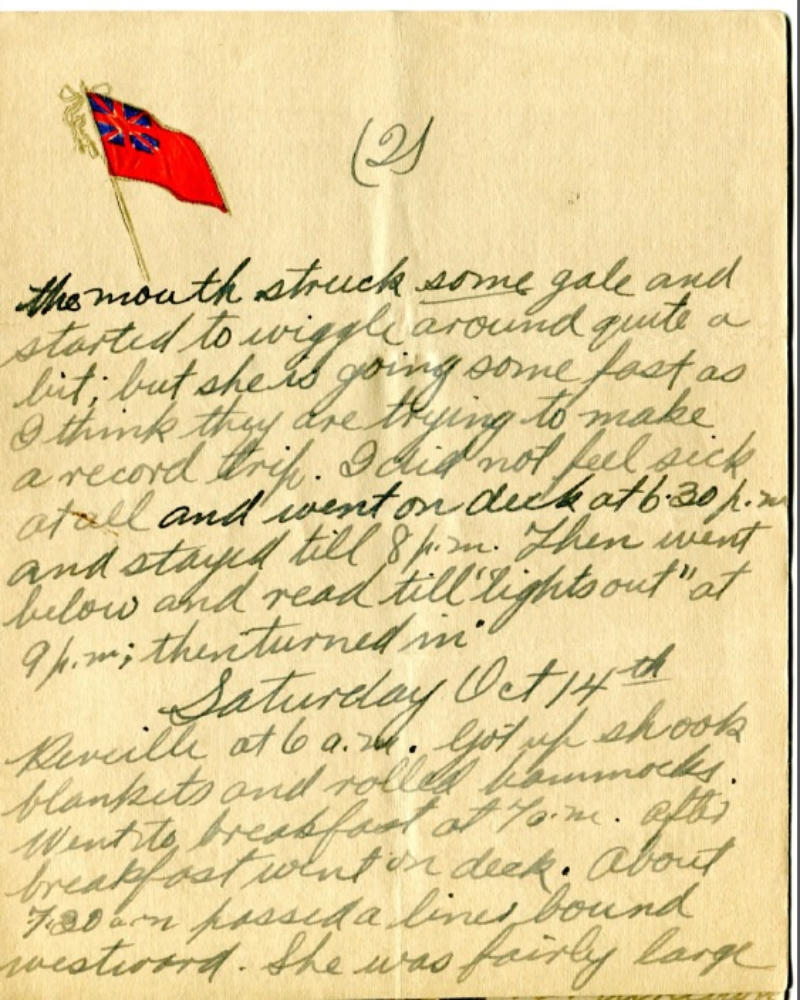 (2)
the mouth struck some gale and
started to wiggle around quite a
bit; but she is going some fast as
I think they are trying to make
a record trip. I did not feel sick
at all and went on deck at 6.30 p.m
and stayed till 8 p.m. Then went
below and read till "lights out" at
9 p.m; then turned in.
Saturday Oct 14th
Reveille at 6 a.m. Got up shook
blankets and rolled hammocks.
Went to breakfast at 7 a.m. after
breakfast went on deck. About
7.30 am passed a liner bound
westward. She was fairly large